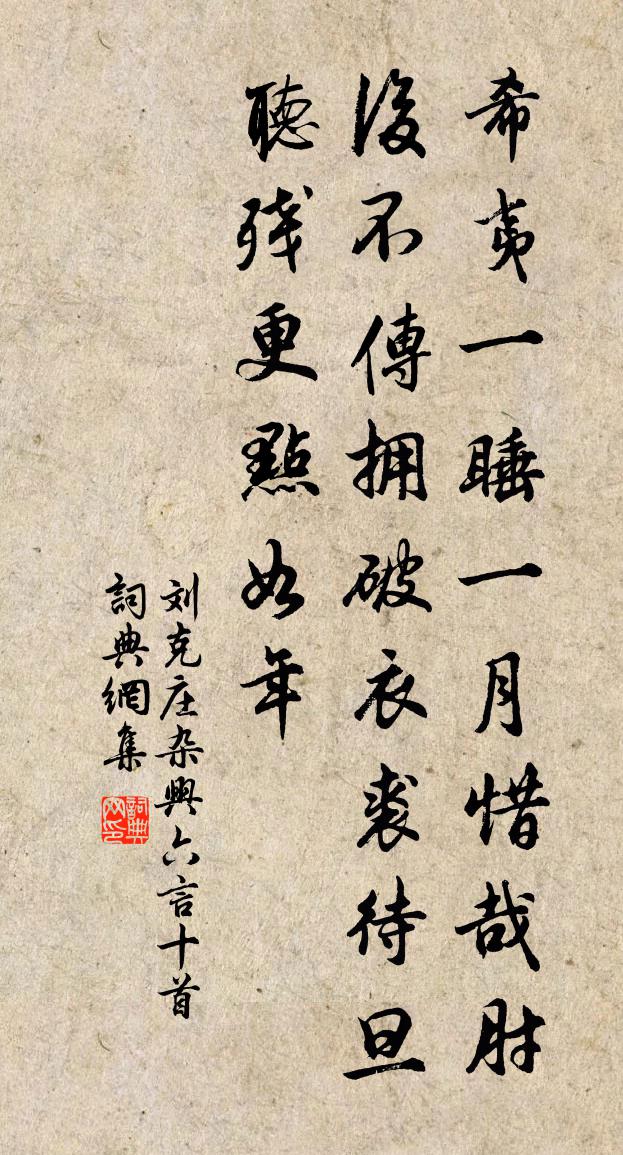 希夷一睡一月惜哉肘
後不傳拥破衣裘待旦
聴残更點如年
刘克庄杂興六言十首
詞典網集
詞典网印